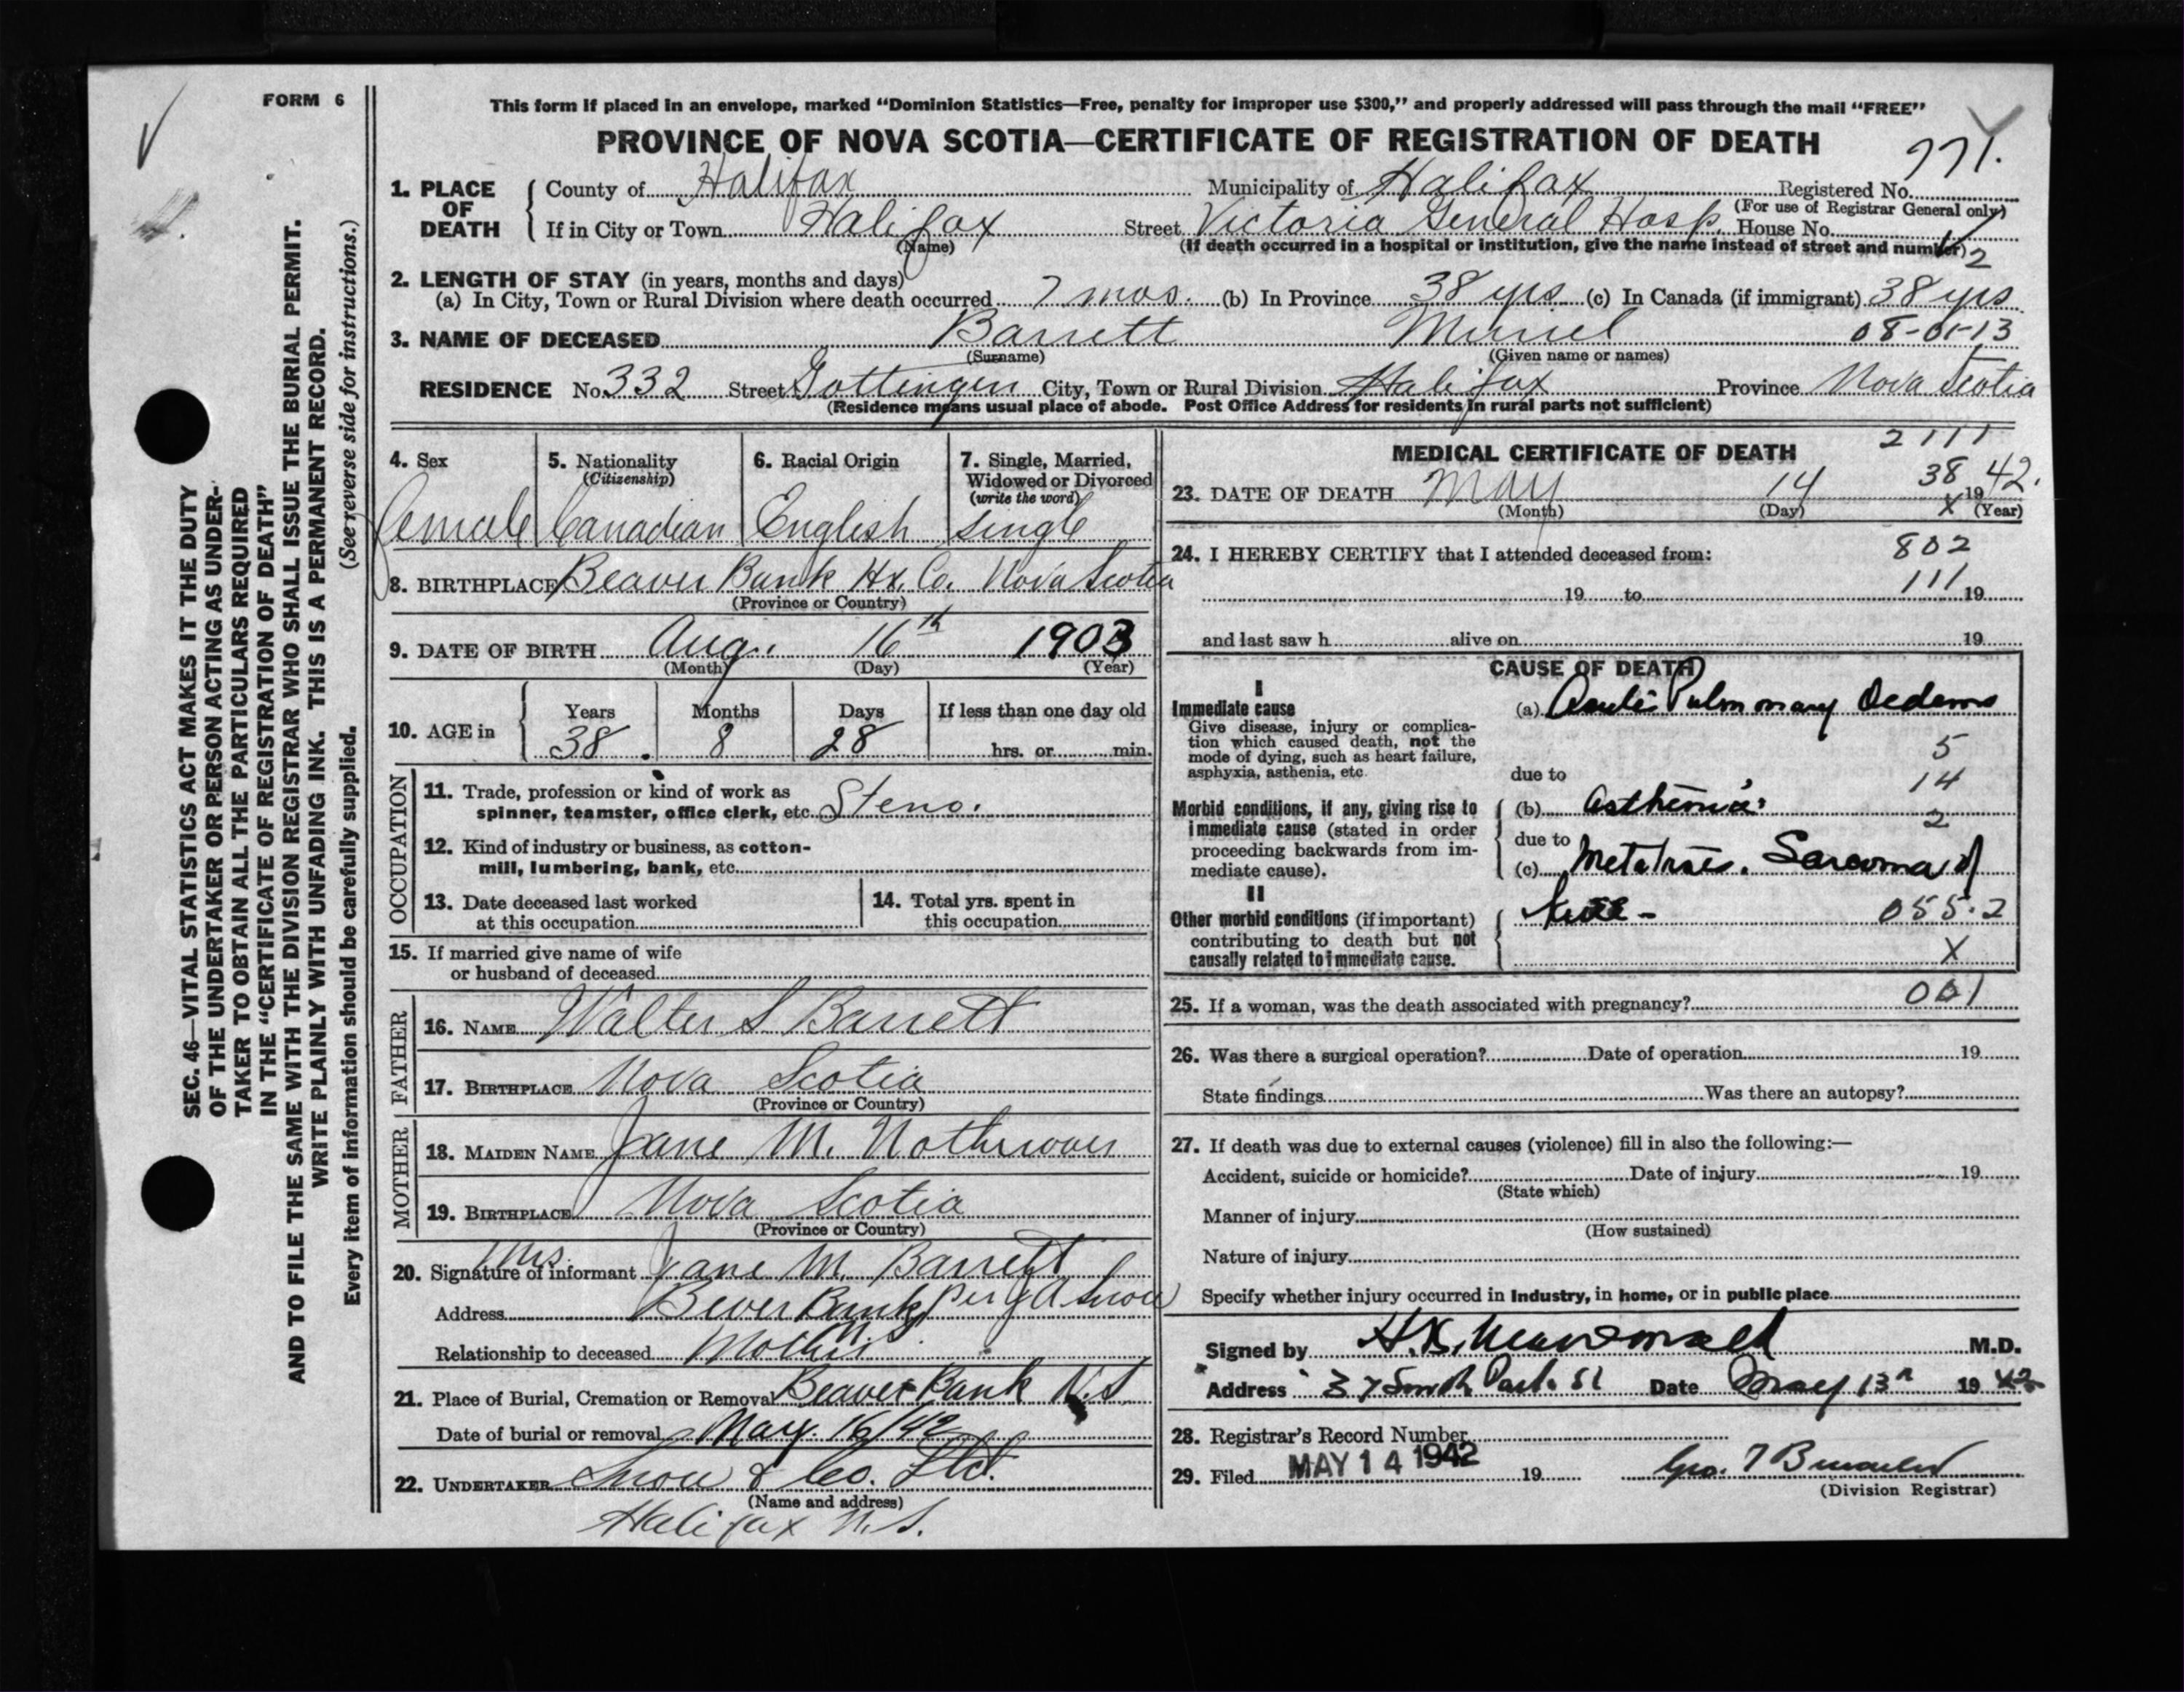 FORM 6
This form if placed in an envelope, marked “Dominion Statistics—Free, penalty for improper use $300,” and properly addressed will pass through the mail “FREE”
PROVINCE OF NOVA SCOTIA—CERTIFICATE OF REGISTRATION OF DEATH
771.
1. PLACE OF DEATH
County of Halifax Municipality of Halifax Registered No.
(For use of Registrar General only)
If in City or Town Halifax Street Victoria General Hosp. House No.
(Name) (If death occurred in a hospital or institution, give the name instead of street and number)
2
2. LENGTH OF STAY (in years, months and days)
(a) In City, Town or Rural Division where death occurred 7 mos. (b) In Province 38 yrs (c) In Canada (if immigrant) 38 yrs
3. NAME OF DECEASED Barrett Muriel 08-01-13
(Surname) (Given name or names)
RESIDENCE No. 332 Street Gottingen City, Town or Rural Division Halifax Province Nova Scotia
(Residence means usual place of abode. Post Office Address for residents in rural parts not sufficient)
4. Sex 5. Nationality (Citizenship) 6. Racial Origin 7. Single, Married, Widowed or Divorced (write the word)
Female Canadian English single
8. BIRTHPLACE Beaver Bank Hx. Co. Nova Scotia
(Province or Country)
9. DATE OF BIRTH Aug. 16th 1903
(Month) (Day) (Year)
10. AGE in Years Months Days If less than one day old
38 8 28 hrs. or min.
OCCUPATION
11. Trade, profession or kind of work as
spinner, teamster, office clerk, etc. Steno.
12. Kind of industry or business, as cotton-
mill, lumbering, bank, etc.
13. Date deceased last worked
at this occupation
14. Total yrs. spent in
this occupation
15. If married give name of wife
or husband of deceased
FATHER
16. NAME Walter S Barrett
17. BIRTHPLACE Nova Scotia
(Province or Country)
MOTHER
18. MAIDEN NAME Jane M.
19. BIRTHPLACE Nova Scotia
(Province or Country)
20. Signature of informant Mrs. Jane M. Barrett
Address Bever Bank N.S. Per J A Snow
Relationship to deceased Mother
21. Place of Burial, Cremation or Removal Beaver Bank N.S
Date of burial or removal May. 16/42
22. UNDERTAKER Snow & Co. Ltd.
(Name and address)
Halifax N.S.
MEDICAL CERTIFICATE OF DEATH
2111
38
23. DATE OF DEATH May 14 1942.
(Month) (Day) (Year)
X
24. I HEREBY CERTIFY that I attended deceased from:
802
19 to 19
111
and last saw h alive on 19
CAUSE OF DEATH
I
Immediate cause
Give disease, injury or complica-
tion which caused death, not the
mode of dying, such as heart failure,
asphyxia, asthenia, etc.
(a) Acute Pulmonary Oedema
5
due to
14
Morbid conditions, if any, giving rise to
immediate cause (stated in order
proceeding backwards from im-
mediate cause).
(b) Asthenia
2
due to
(c) Sarcoma of
II
Other morbid conditions (if important)
contributing to death but not
causally related to immediate cause.
055.2
X
25. If a woman, was the death associated with pregnancy?
001
26. Was there a surgical operation? Date of operation 19
State findings Was there an autopsy?
27. If death was due to external causes (violence) fill in also the following:—
Accident, suicide or homicide? Date of injury 19
(State which)
Manner of injury
(How sustained)
Nature of injury
Specify whether injury occurred in industry, in home, or in public place
Signed by H.K. M.D.
Address 37 South Park St Date May 13th 1942
28. Registrar's Record Number
29. Filed MAY 14 1942 19 Geo.
(Division Registrar)
SEC. 46—VITAL STATISTICS ACT MAKES IT THE DUTY
OF THE UNDERTAKER OR PERSON ACTING AS UNDER-
TAKER TO OBTAIN ALL THE PARTICULARS REQUIRED
IN THE “CERTIFICATE OF REGISTRATION OF DEATH”
AND TO FILE THE SAME WITH THE DIVISION REGISTRAR WHO SHALL ISSUE THE BURIAL PERMIT.
WRITE PLAINLY WITH UNFADING INK. THIS IS A PERMANENT RECORD.
Every item of information should be carefully supplied. (See reverse side for instructions.)